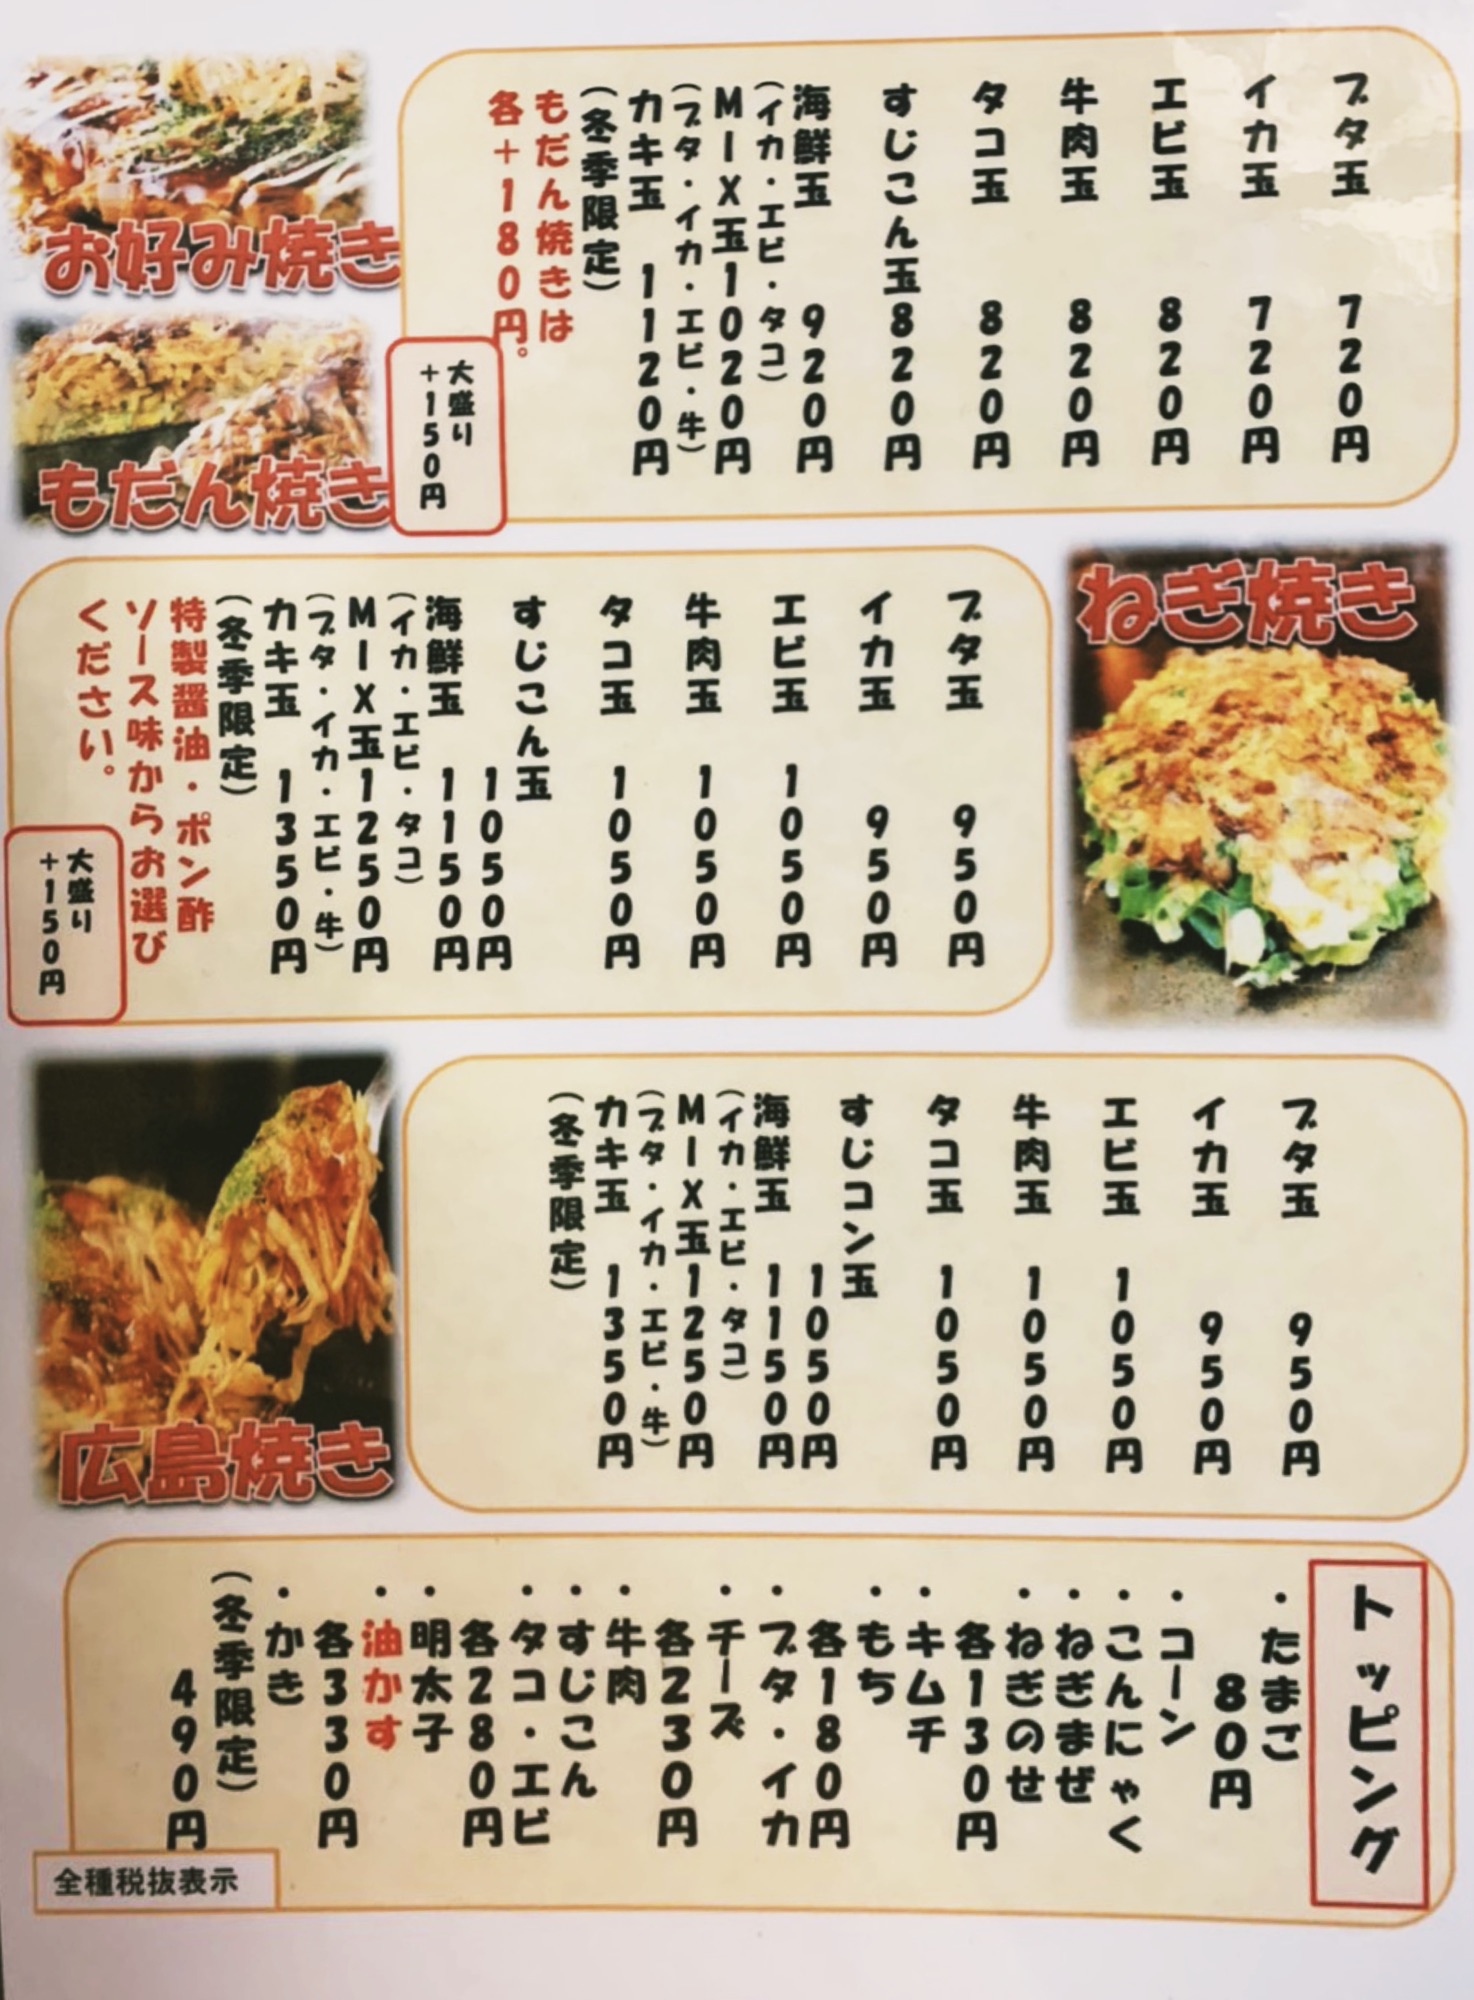 お好み焼き
もだん焼き
ブタ玉 720円
イカ玉 720円
エビ玉 820円
牛肉玉 820円
タコ玉 820円
すじこん玉 820円
海鮮玉 920円
(イカ・エビ・タコ)
MIX玉 1020円
(ブタ・イカ・エビ・牛)
カキ玉 1120円
(冬季限定)
もだん焼きは
各+180円。
大盛り
+150円
ねぎ焼き
ブタ玉 950円
イカ玉 950円
エビ玉 1050円
牛肉玉 1050円
タコ玉 1050円
すじこん玉
1050円
海鮮玉 1150円
(イカ・エビ・タコ)
MIX玉 1250円
(ブタ・イカ・エビ・牛)
カキ玉 1350円
(冬季限定)
特製醤油・ポン酢
ソース味からお選び
ください。
大盛り
+150円
広島焼き
ブタ玉 950円
イカ玉 950円
エビ玉 1050円
牛肉玉 1050円
タコ玉 1050円
すじコン玉
1050円
海鮮玉 1150円
(イカ・エビ・タコ)
MIX玉 1250円
(ブタ・イカ・エビ・牛)
カキ玉 1350円
(冬季限定)
トッピング
・たまご
80円
・コーン
・こんにゃく
・ねぎまぜ
・ねぎのせ
各130円
・キムチ
・もち
各180円
・ブタ・イカ
・チーズ
各230円
・牛肉
・すじこん
・タコ・エビ
各280円
・明太子
・油かす
各330円
・かき
(冬季限定)
490円
全種税抜表示